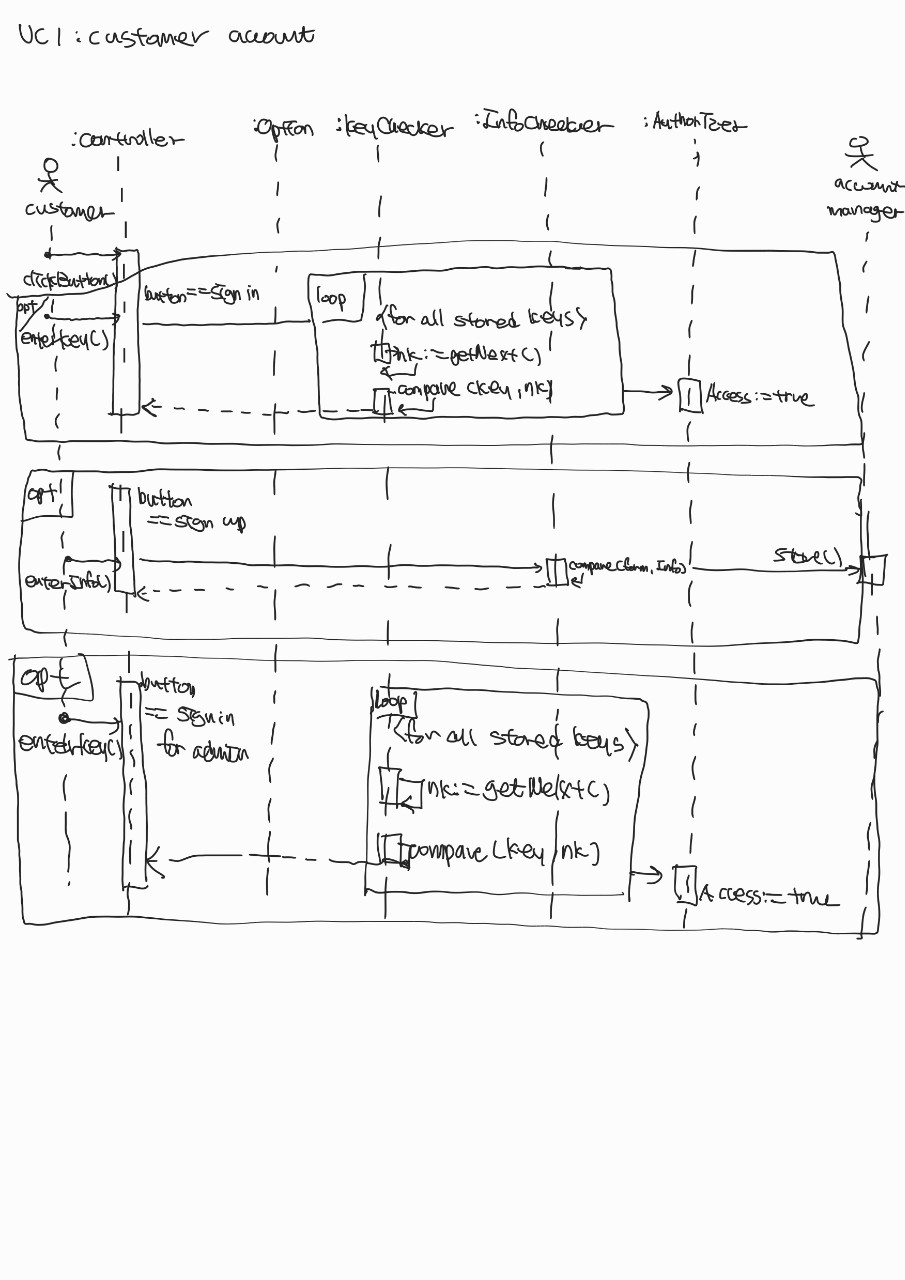 UC1 : customer account
:Controller
:Option
:KeyChecker
:InfoChecker
:Authorizer
customer
account
manager
clickButton()
opt
button==sign in
loop
enterkey()
<for all stored keys>
nk:=getNext()
compare (key, nk)
Access:=true
opt
button
==sign up
enterInfo()
compare(form, Info)
store()
opt
button
== sign in
for admin
enterkey()
loop
<for all stored keys>
nk:=getNext()
compare (key, nk)
Access:=true